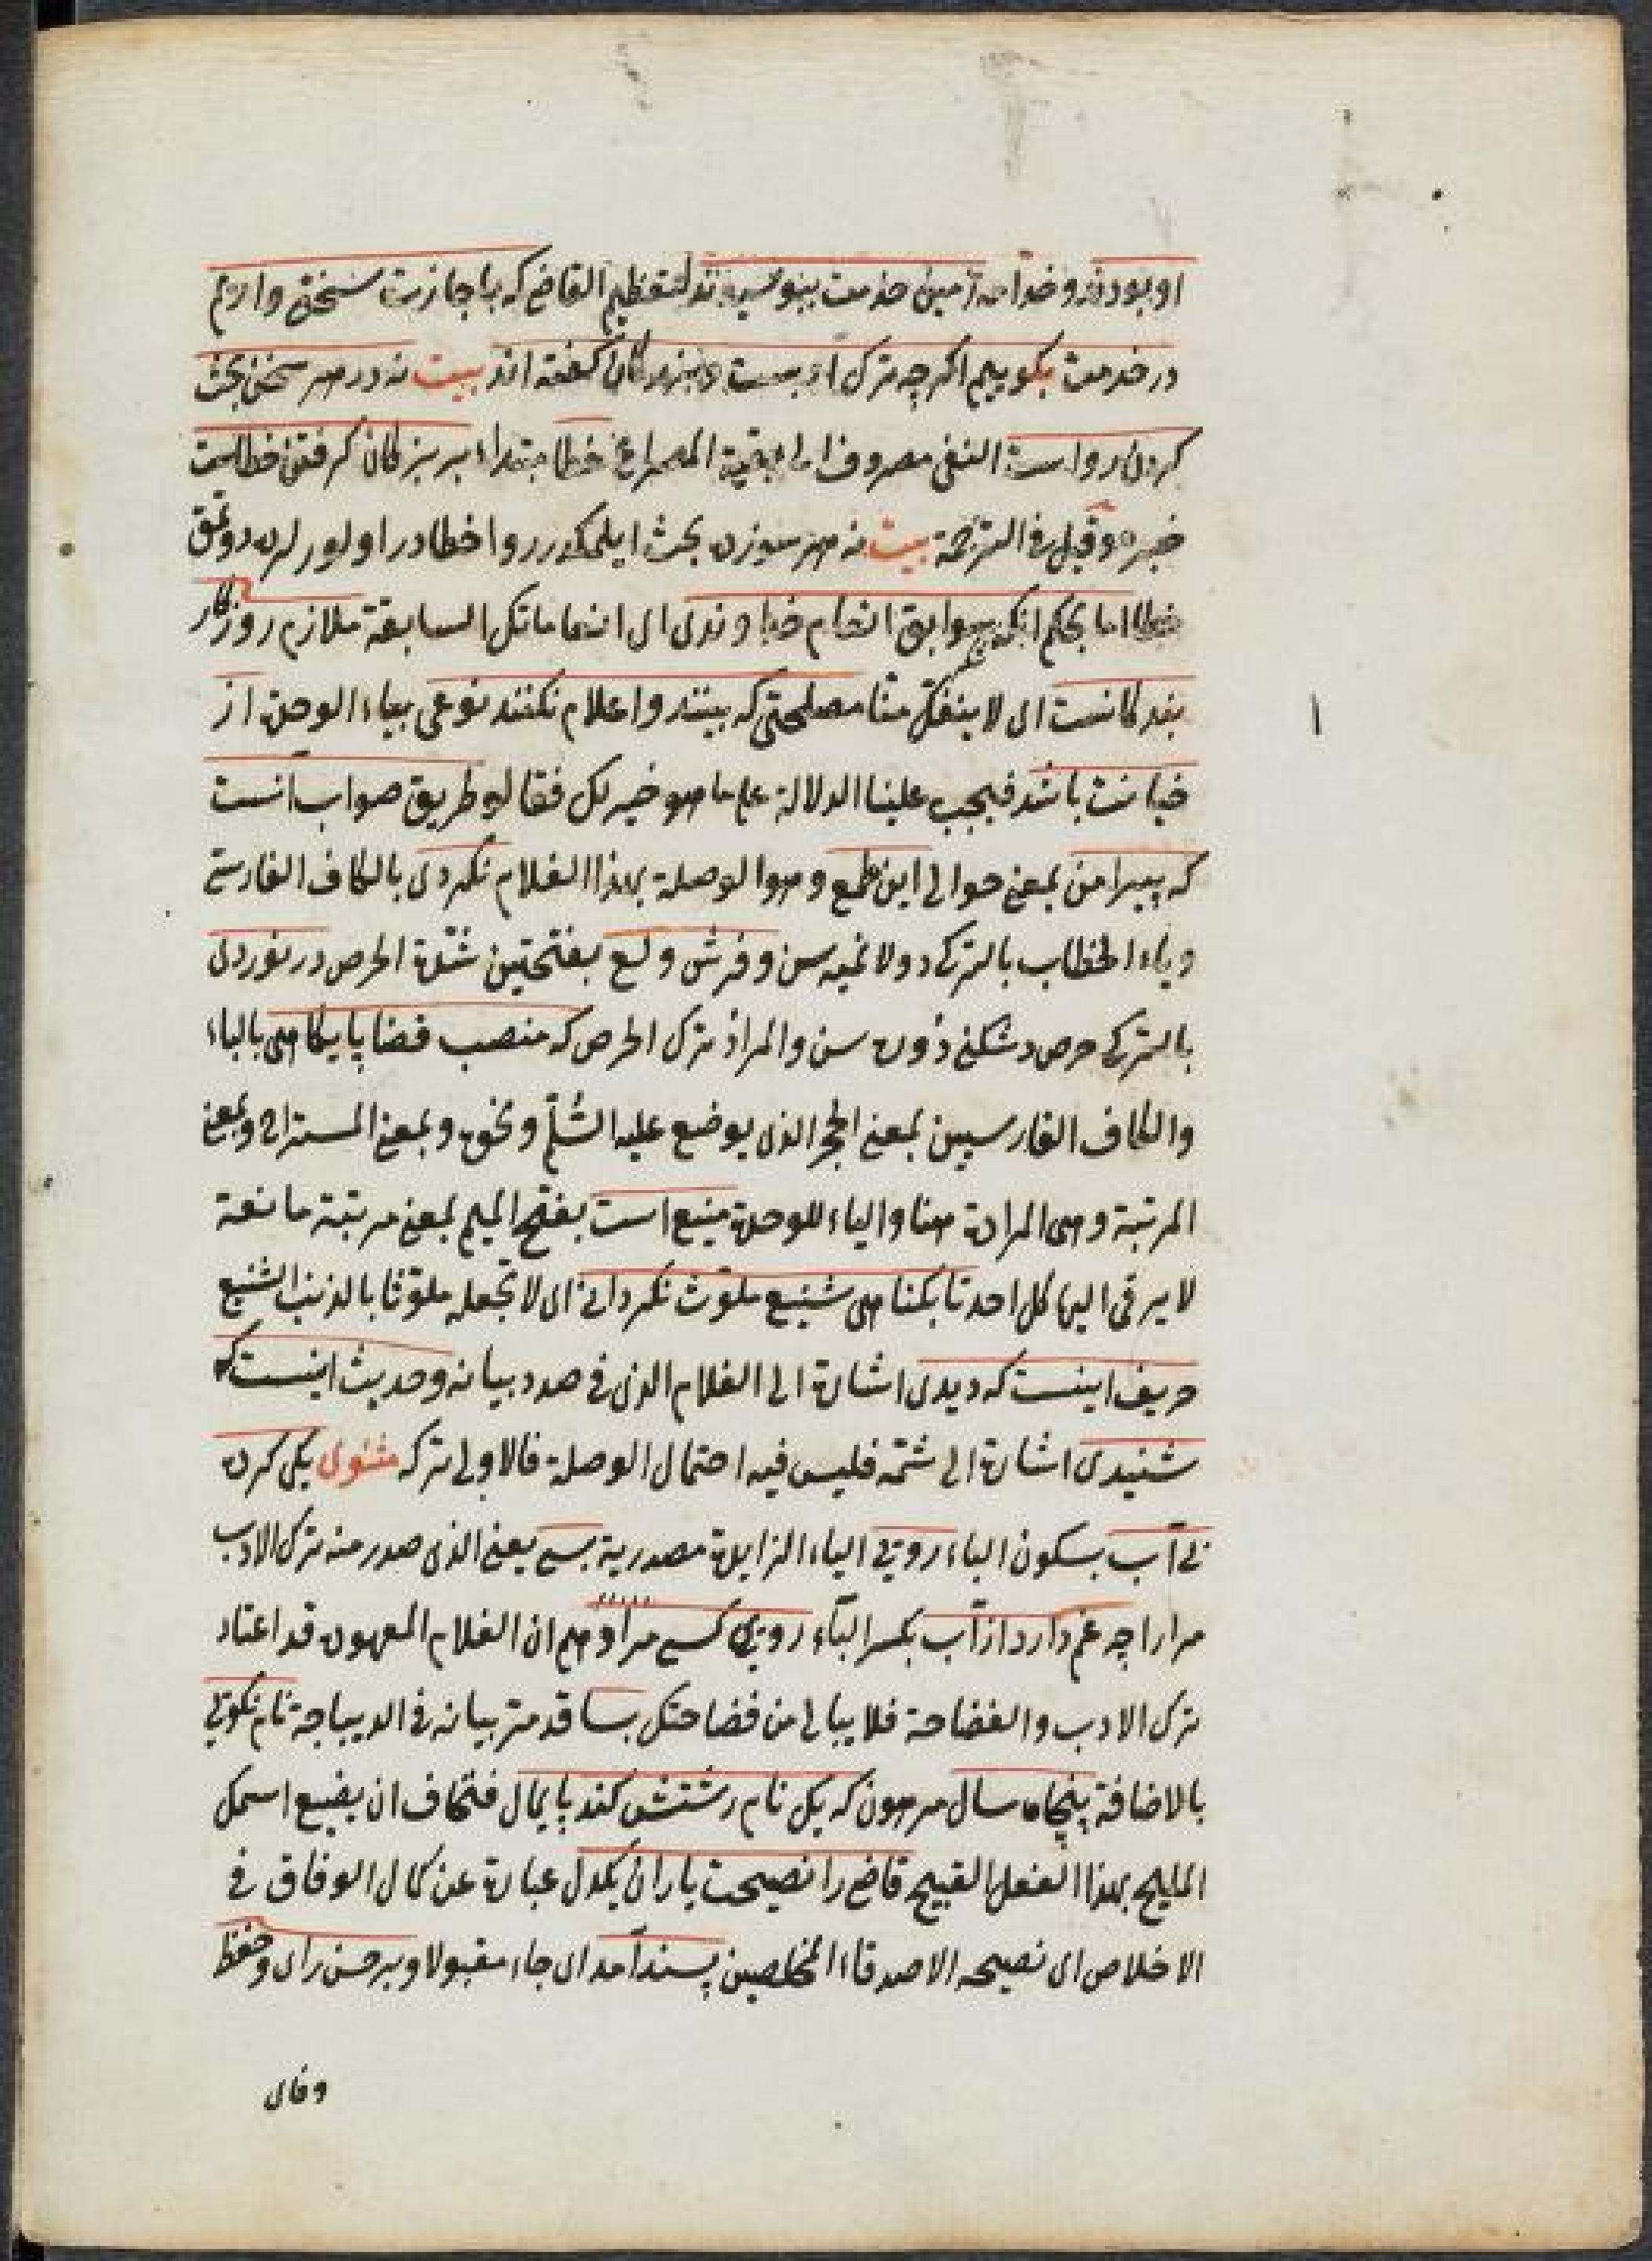 او بودند و خدامه زمین خدمت ببوسیدند لتعظیم القاضی که باجازت سخنی داریم
در خدمت بکوییم اکرچه ترک ادبست و بزرکان کفته اند بیت نه در هر سخن بحث
کردن رواست النفی مصروف الی بقیة المصراع خطا مبتداء بر بزرکان کرفتن خطاست
خبره وقیل فی الترجمة بیت نه هر سوزده بحث ایلمکدر روا خطادر اولور لرده دوتمق
خطا اما بحکم انکه سوابق انعام خداوندی ای انعاماتک السابقة ملازم روزکار
بندکانست ای لا ینفک منا مصلحتی که بینند واعلام نکنند نوعی بیاء الوحدة از
خیانت باشد فیجب علینا الدلالة علی ما هو خیر لک فقالوا طریق صواب آنست
که پیرامن بمعنی حوالی این طمع وهو الوصلة بهذا الغلام نکردی بالکاف الفارسی
ویاء الخطاب بالترکی دولانمیه سن وفرش ولع بفتحتین شدة الحرص در نوردی
بالترکی حرص دشکنی دوره سن والمراد ترک الحرص که منصب قضا پایکاهی بالباء
والکاف الفارسیین بمعنی الحجر الذی یوضع علیه السلّم ونحوه وبمعنی المستراح وبمعنی
المرتبة وهی المرادة هنا والیاء للوحدة منیع است بفتح المیم بمعنی مرتبة مانعة
لا یرقی الیها کل احد تا بکناهی شنیع ملوث نکردانی ای لا تجعله ملوثا بالذنب الشنیع
حریف اینست که دیدی اشارة الی الغلام الذی فی صدد بیانه وحدیث اینست که
شنیدی اشارة الی شتمه فلیس فیه احتمال الوصلة فالاولی ترکه مثنوی یکی کرده
بی آب بسکون الباء رویی الیاء الزایدة مصدریة بسی یعنی الذی صدر منه ترک الادب
مرارا چه غم دارد از آب بکسر الباء روی کسی مراده ان الغلام المعهود قد اعتاد
ترک الادب والفضاحة فلا یبالی من فضاحتک بسا قد مرّ بیانه فی الدیباجة نام نکوی
بالاضافة پنجاه سال مرهون که یک نام زشتش کند پایمال فتخاف ان یضیع اسمک
الملیح بهذا الفعل القبیح قاضی را نصیحت یاران یکدل عبارة عن کمال الوفاق فی
الاخلاص ای نصیحه الاصدقاء المخلصین پسند آمد ای جاء مقبولا وبر حسن رای وحفظ
وفای